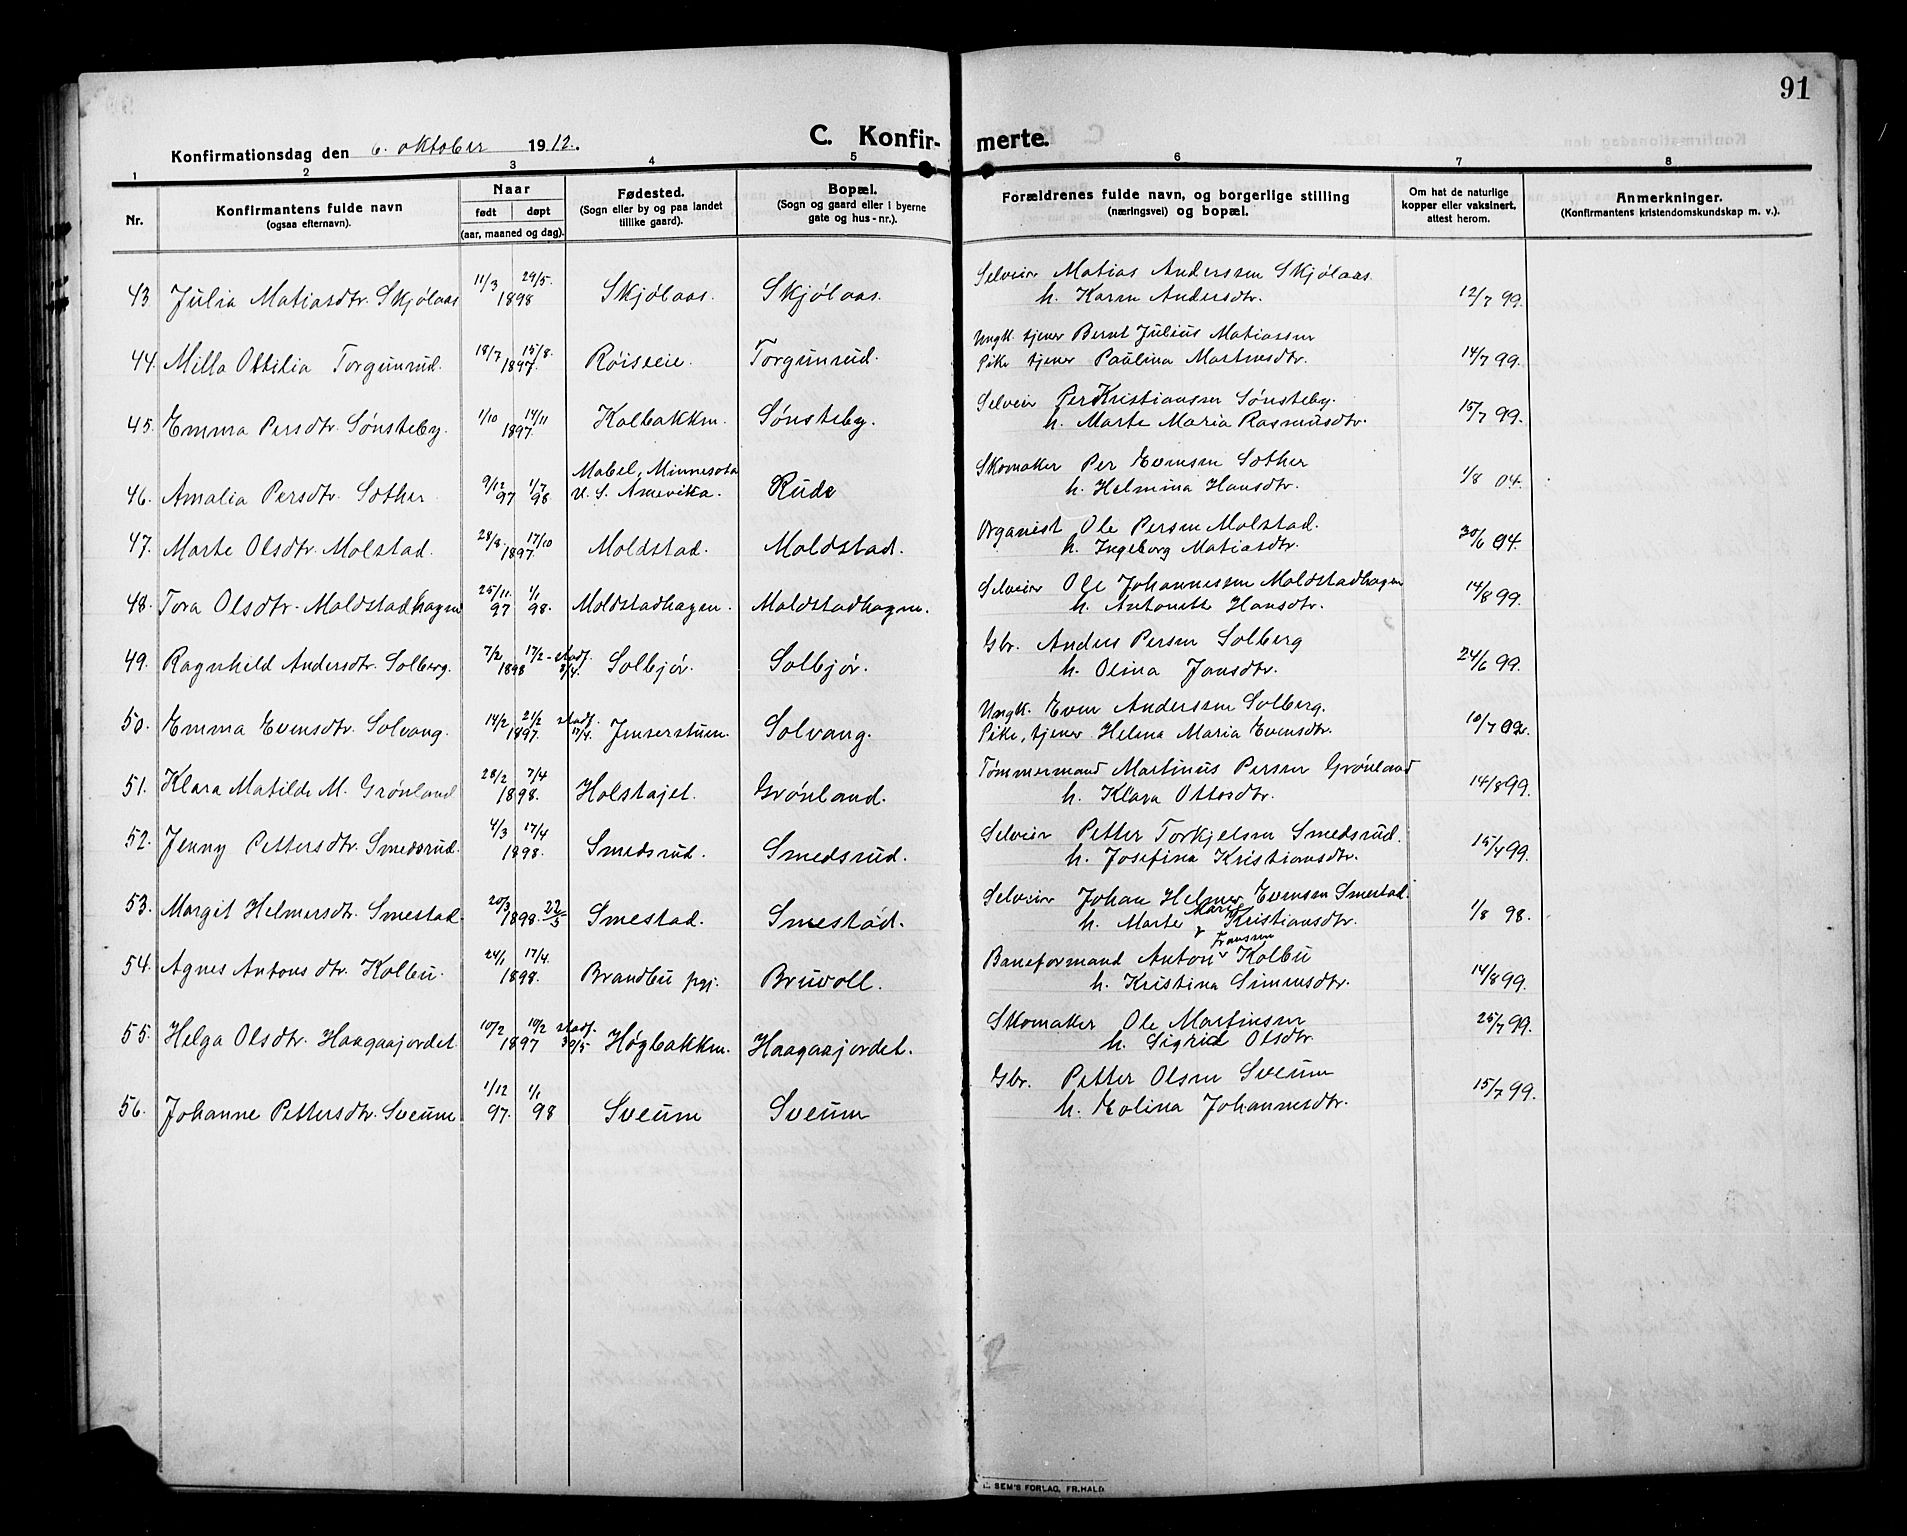 91
Konfirmationsdag den 6. oktober 1912.
C. Konfir- merte.
1 2 3 4 5 6 7 8
Nr. Konfirmantens fulde navn (ogsaa efternavn). Naar født døpt (aar, maaned og dag). Fødested. (Sogn eller by og paa landet tillike gaard). Bopæl. (Sogn og gaard eller i byerne gate og hus-nr.). Forældrenes fulde navn, og borgerlige stilling (næringsvei) og bopæl. Om hat de naturlige kopper eller vaksinert, attest herom. Anmerkninger. (Konfirmantens kristendomskundskap m. v.).
43. Julia Matiasdtr. Skjølaas 11/3 29/5. 1898 Skjølaas. Skjølaas. Selveier Matias Anderssen Skjølaas.
h. Karen Andersdtr. 12/7 99.
44. Milla Ottilia Torgunrud. 18/7 15/8. 1897. Røiseeie. Torgunrud. Ungk. tjener Bernt Julius Matiassen
Pike tjener Paulina Martinsdtr. 14/7 99.
45. Emma Persdtr. Sønsteby. 1/10 14/11 1897. Kolbakken. Sønsteby. Selveier Per Kristiansen Sønsteby.
h. Marte Maria Rasmusdtr. 15/7 99.
46. Amalia Persdtr. Sother. 9/12 97 1/7 98 Mabel, Minnesota U. S. Amerika. Rude Skomaker Per Evensen Sother
h. Helmina Hansdtr. 1/8 04.
47. Marte Olsdtr. Molstad. 28/8. 17/10 1897. Moldstad. Moldstad. Organist Ole Persen Molstad.
h. Ingeborg Matiasdtr. 30/6 04.
48. Tora Olsdtr. Moldstadhagen 25/11. 97 1/1 98. Moldstadhagen. Moldstadhagen. Selveier Ole Johannessen Moldstadhagen
h. Antonette Hansdtr. 14/8 99.
49. Ragnhild Andersdtr. Solberg. 7/2 17/2 - stadf. 1898 3/4. Solbjør. Solbjør. Gbr. Anders Persen Solberg
h. Olina Jansdtr. 24/6 99.
50. Emma Evensdtr. Solvang. 14/2 21/2 stadf. 1897. 17/4. Jenserstuen. Solvang. Ungk. Even Anderssen Solberg.
Pike, tjener Helena Maria Evensdtr. 10/7 02.
51. Klara Matilde M. Grønland 28/2 7/4 1898. Holstajet. Grønland. Tømmermand Martinus Persen Grønland
h. Klara Ottosdtr. 14/8 99.
52. Jenny Pettersdtr. Smedsrud. 4/3 17/4 1898. Smedsrud. Smedsrud. Selveier Petter Torkjelsen Smedsrud.
h. Josefina Kristiansdtr. 15/4 99.
53. Margit Helmersdtr. Smestad. 20/3 1898. 22/5 Smestad. Smestad. Selveier Johan Helmer Evensen Smestad.
h. Marte Marie Kristiansdtr. 1/8 98.
54. Agnes Antonsdtr. Kolbu. 24/1 17/4. 1898. Brandbu pgj. Bruvoll. Baneformand Anton Franssen Kolbu
h. Kristina Simensdtr. 14/8 99.
55. Helga Olsdtr. Haagaajordet 10/2 10/2 stadf. 1897 30/5 Høgbakken. Haagaajordet. Skomaker Ole Martinsen
h. Sigrid Olsdtr. 25/7 99.
56. Johanne Pettersdtr. Sveum. 1/12 97. 1/1 98 Sveum Sveum Gbr. Petter Olsen Sveum
h. Eolina Johannesdtr. 15/7 99.
SEM'S FORLAG, FR.HALD